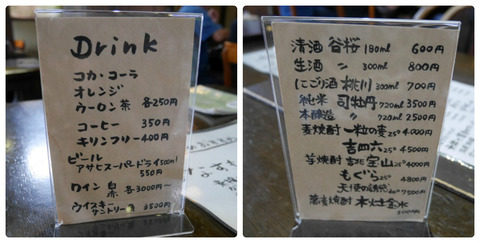 Drink
コカ・コーラ
オレンジ
ウーロン茶 各250円
コーヒー 350円
キリンフリー 400円
ビール
アサヒスーパードライ 500ml
550円
ワイン 白 赤 各3000円〜
ウイスキー
サントリー 3500円
清酒 谷桜 180ml 600円
生酒 〃 300ml 800円
にごり酒 桃川 300ml 700円
純米 司牡丹 720ml 3500円
本醸造 〃 720ml 2500円
麦焼酎 一粒の麦 25° 4000円
吉四六 25° 4500円
芋焼酎 宝山 25° 4000円
もぐら 25° 4800
天使の誘惑 40° 7500円
蕎麦焼酎